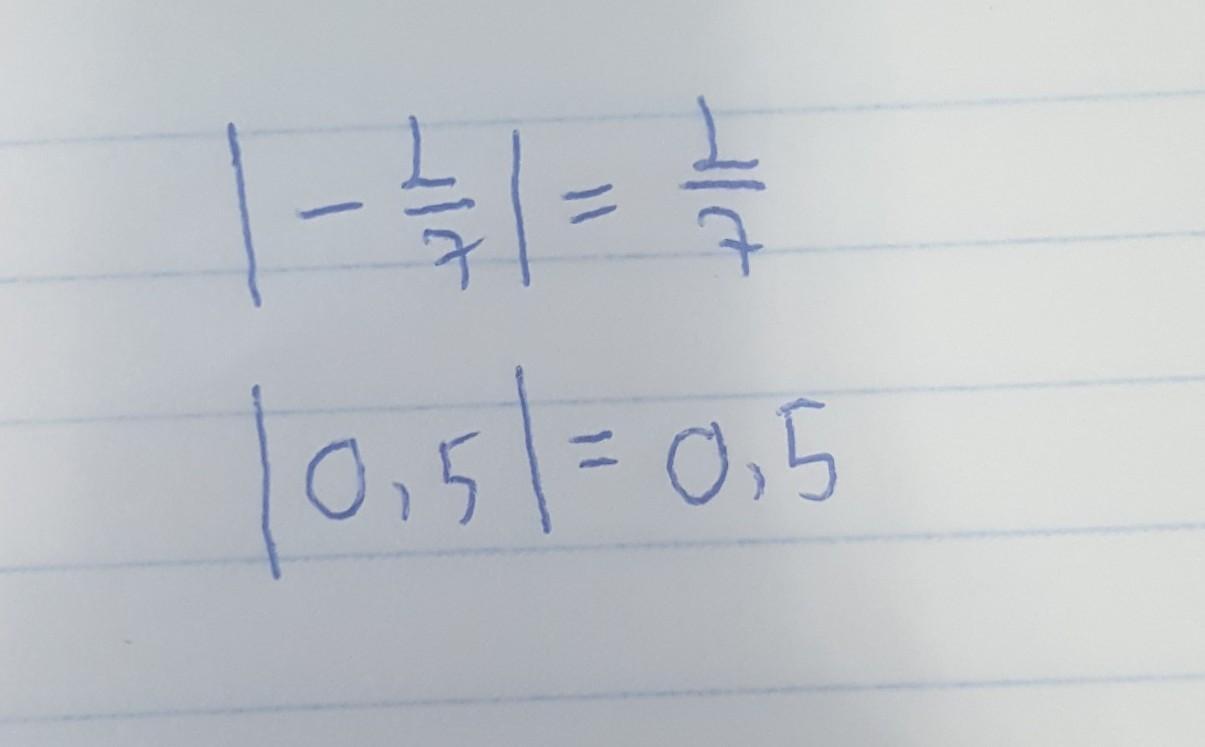 |-1/7| = 1/7
|0,5| = 0,5